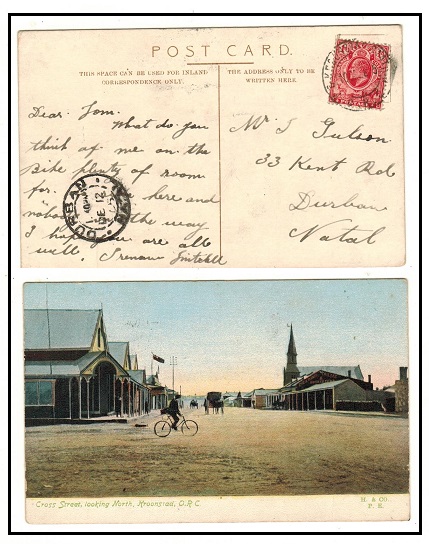 POST CARD.
THIS SPACE CAN BE USED FOR INLAND
CORRESPONDENCE ONLY.
THE ADDRESS ONLY TO BE
WRITTEN HERE.
Dear Tom.
What do you
think of me on the
Bike plenty of room
for. here and
the way
I hope you are all
well.
DURBAN
DE 12
Mr T Gulson
33 Kent Rd
Durban
Natal
Cross Street, looking North, Kroonstad, O.R.C.
H. & Co.
P. E.